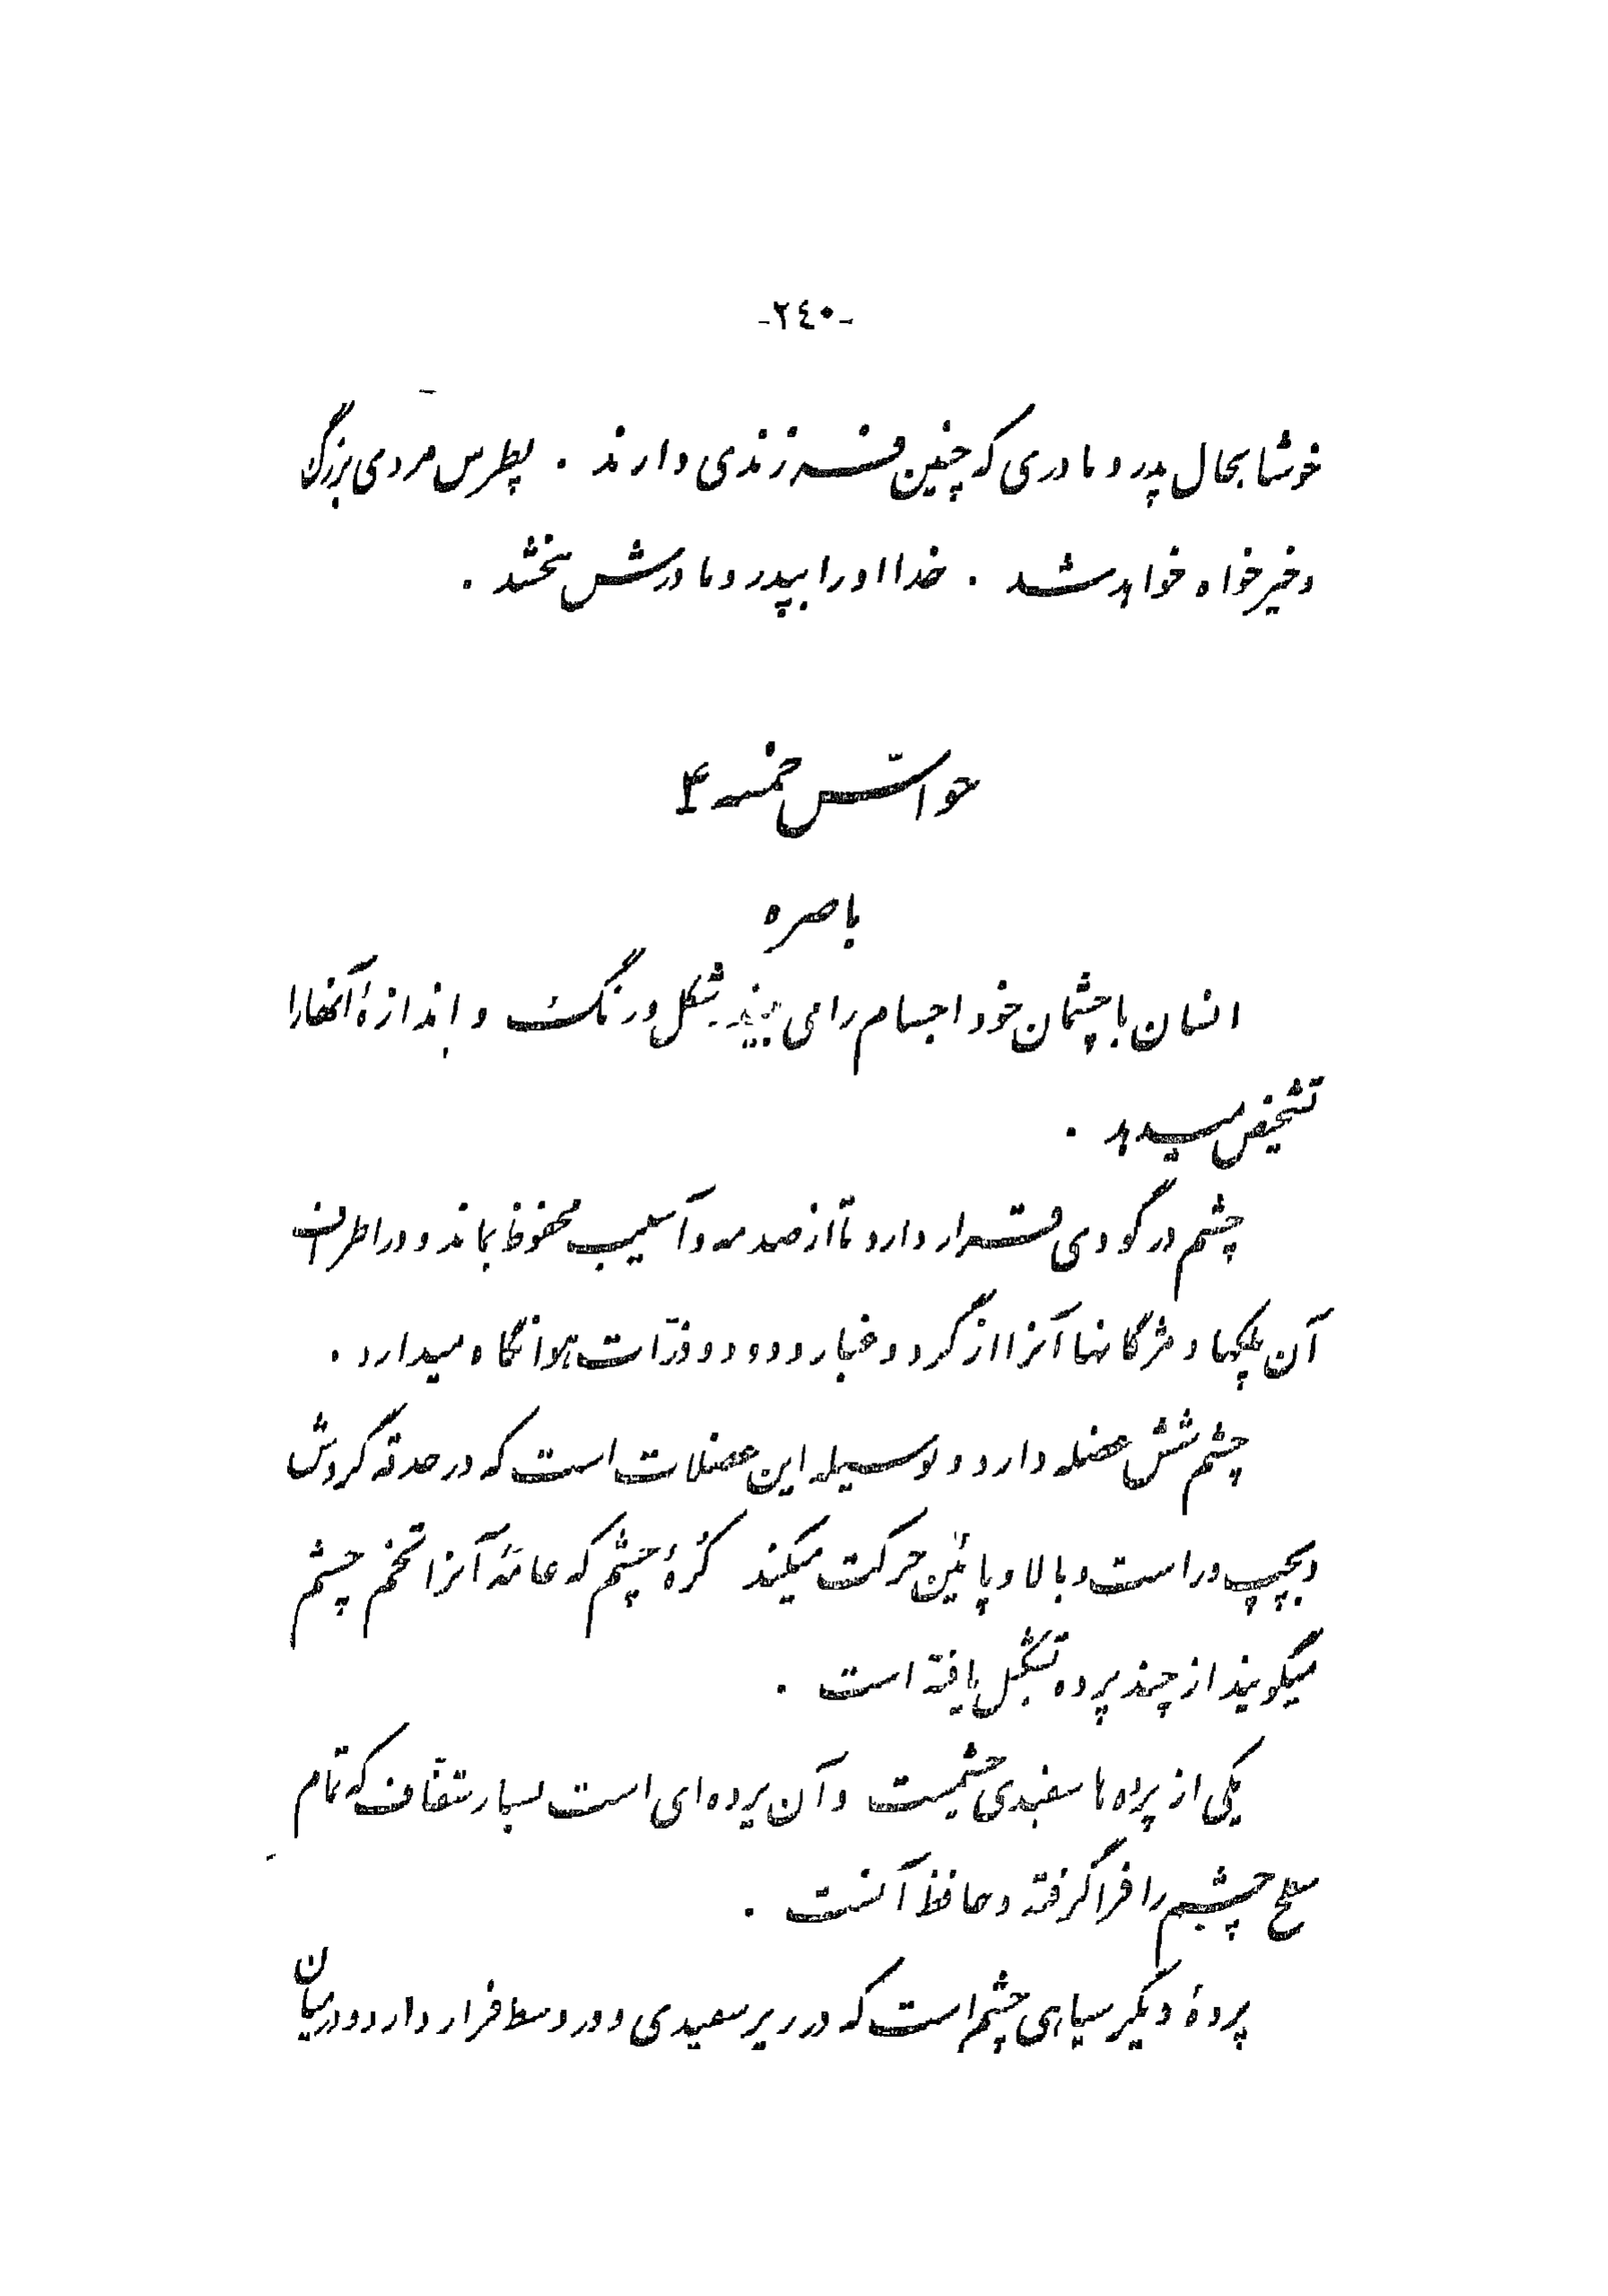 -٢٤٠-
خوشا بحال پدر و مادری که چنین فرزندی دارند . پطرس مردی بزرگ
و خیرخواه خواهد شد . خدا او را بپدر و مادرش ببخشد .
حواسّ خمسه ۴
باصره
انسان با چشمان خود اجسام را می بیند شکل و رنگ و اندازهٔ آنها را
تشخیص میدهد .
چشم در گودی قرار دارد تا از صدمه و آسیب محفوظ بماند و در اطراف
آن پلکها و مژگانها آنرا از گرد و غبار و دود و ذرّات هوا نگاه میدارد .
چشم شش عضله دارد و بوسیله این عضلات است که در حدقه گردش
و بچپ و راست و بالا و پائین حرکت میکند کُرهٔ چشم که عامّه آنرا تخم چشم
میگویند از چند پرده تشکیل یافته است .
یکی از پرده ها سفیدی چشمیست و آن پرده ای است بسیار شفّاف که تمام
سطح چشم را فرا گرفته و حافظ آنست .
پردهٔ دیگر سیاهی چشم است که در زیر سفیدی و در وسط قرار دارد و در میان